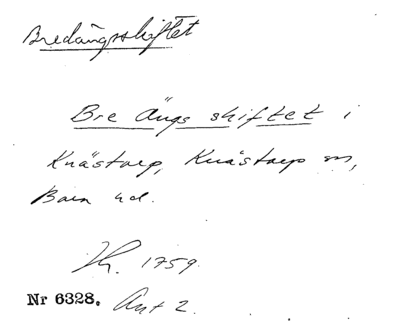 Bredängsskiftet
Bre Ängs skiftet i
Knästorp, Knästorp sn,
Bara hd.
1759.
Nr 6328. Akt 2.